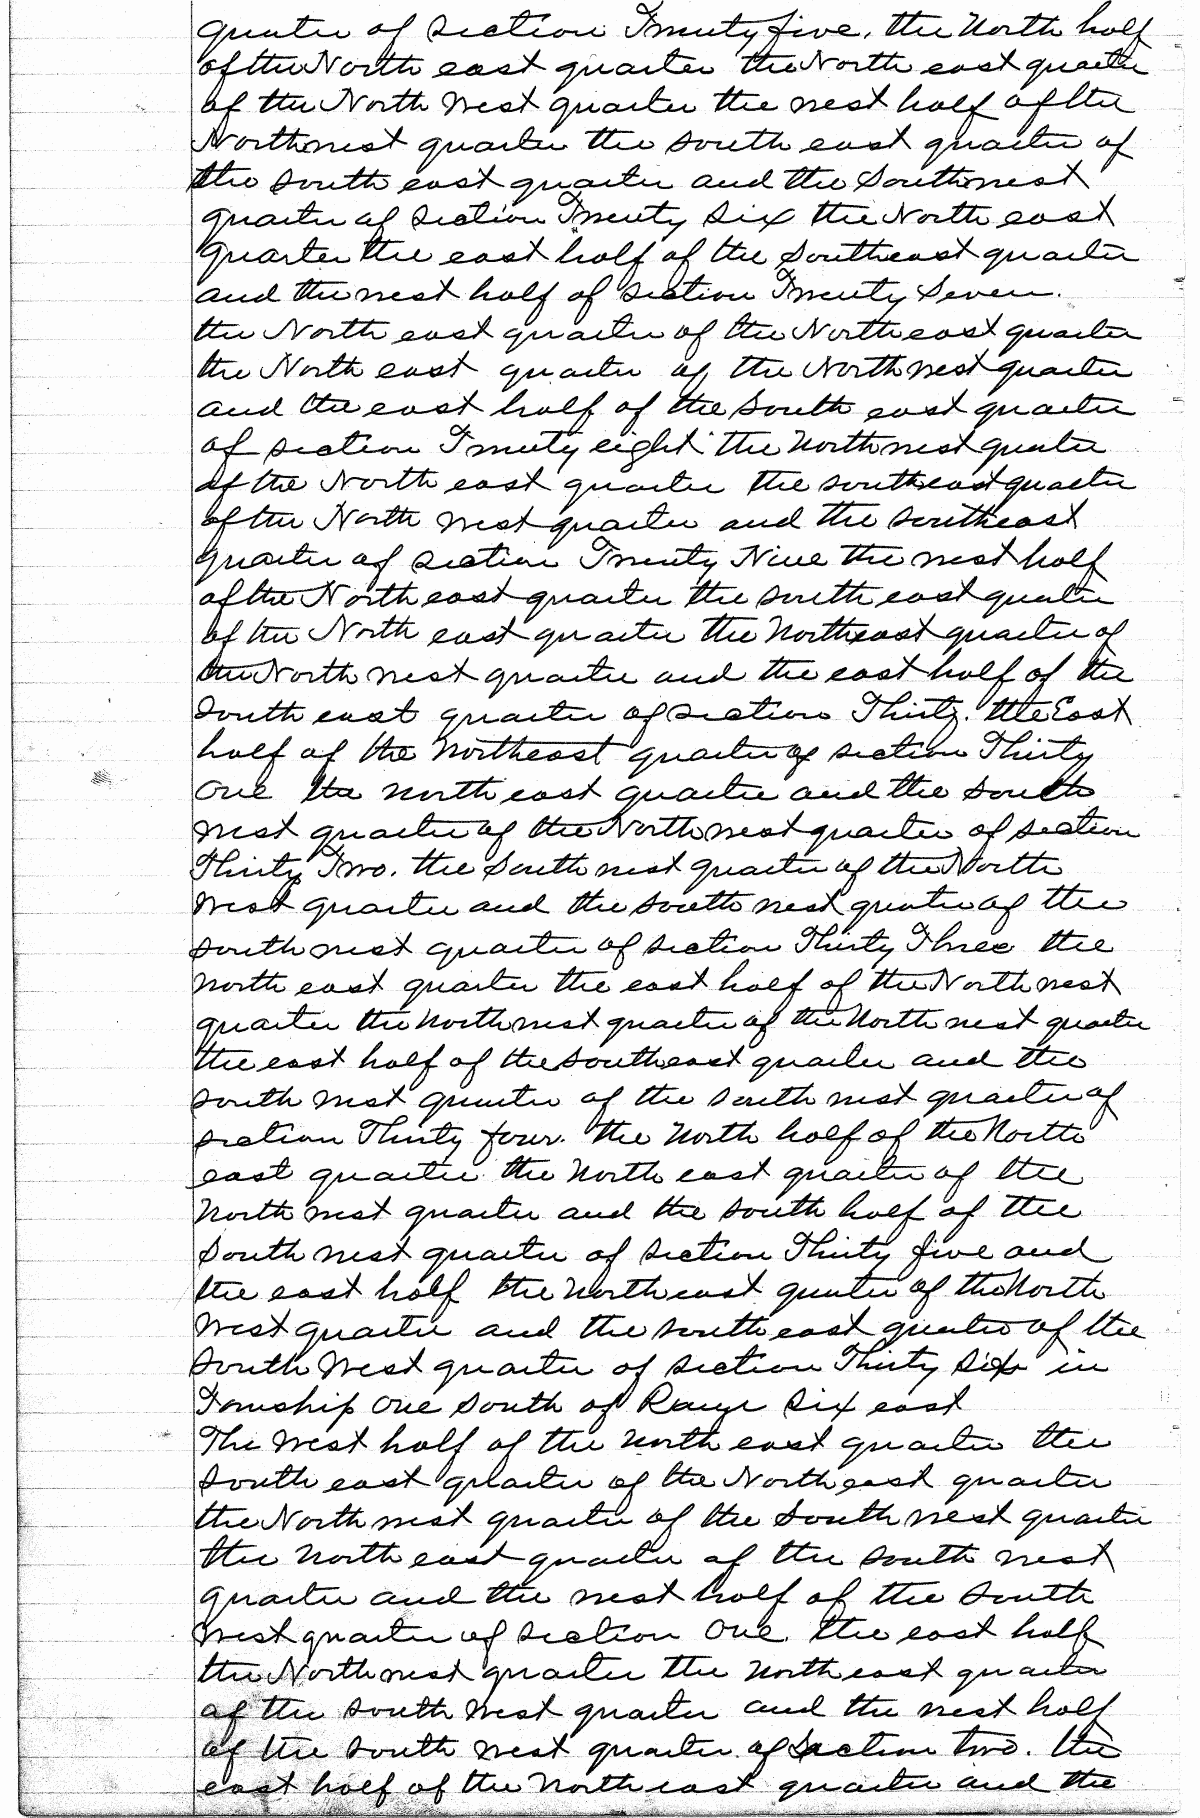 quarter of section Twenty five, the North half
of the North east quarter the North east quarter
of the North West quarter the west half of the
Northwest quarter the south east quarter of
the south east quarter and the Southwest
quarter of section Twenty six the North east
quarter the east half of the Southeast quarter
and the west half of section Twenty Seven.
the North east quarter of the North east quarter
the North east quarter of the North west quarter
and the east half of the South east quarter
of section Twenty eight the North west quarter
of the North east quarter the south east quarter
of the North West quarter and the southeast
quarter of section Twenty Nine the west half
of the North east quarter the south east quarter
of the North east quarter the Northeast quarter of
the North west quarter and the east half of the
South east quarter of section Thirty. the East
half of the Northeast quarter of section Thirty
One the north east quarter and the south
west quarter of the North west quarter of section
Thirty Two. the South west quarter of the North
West quarter and the south west quarter of the
south west quarter of section Thirty Three the
North east quarter the east half of the North west
quarter the North west quarter of the North west quarter
the east half of the southeast quarter and the
south west quarter of the south west quarter of
section Thirty four. the North half of the North
east quarter the North east quarter of the
North west quarter and the south half of the
South west quarter of section Thirty five and
the east half the North east quarter of the North
West quarter and the south east quarter of the
South West quarter of section Thirty six in
Township One South of Range Six east
The West half of the North east quarter the
South east quarter of the North east quarter
the North west quarter of the South west quarter
the North east quarter of the south west
quarter and the west half of the South
West quarter of section One. the east half
the North west quarter the North east quarter
of the South West quarter and the west half
of the South west quarter of Section two. the
east half of the North east quarter and the